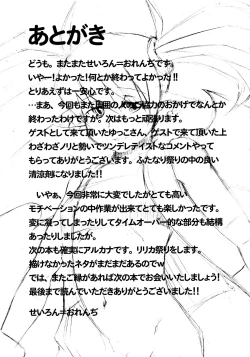 あとがき
どうも。またまたせいろん＝おれんぢです。
いやー!よかった!何とか終わってよかった!!
とりあえずは一安心です。
…まあ、今回もまた
のおかげでなんとか
終わったわけですが。次はもっと頑張ります。
ゲストとして来て頂いたゆっこさん。ゲストで来て頂いた上
わざわざノリと勢いでツンデレテイストなコメントやって
もらってありがとうございます。ふたなり祭りの中の良い
清涼剤になりました!!
いやぁ、今回非常に大変でしたがとても高い
モチベーションの中作業が出来てとても楽しかったです。
変に凝ってしまったりしてタイムオーバー的な部分も結構
あったりしましたが。
次の本も確実にアルカナです。リリカ祭りをします。
描けなかったネタがまだまだあるのでw
では、またご縁があれば次の本でお会いいたしましょう!
最後まで読んでいただきありがとうございました!!
せいろん＝おれんぢ